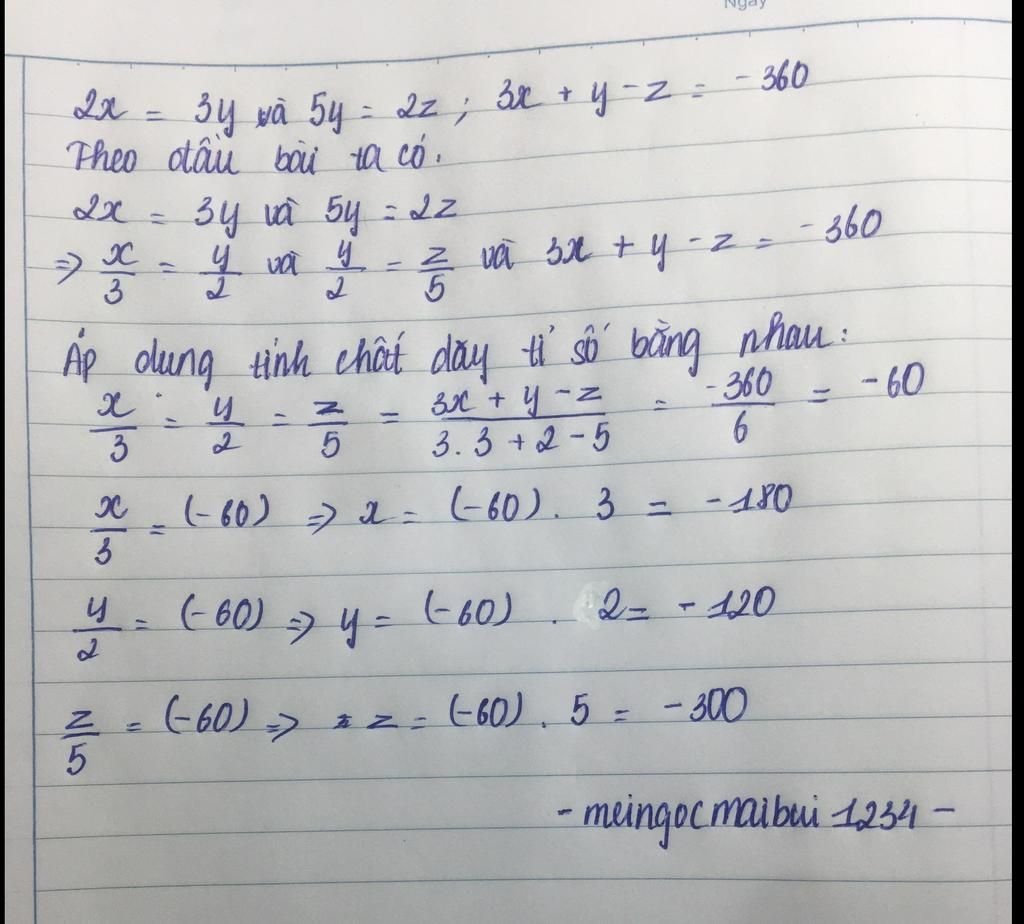 Ngày
2x = 3y và 5y = 2z ; 3x + y - z = -360
Theo đầu bài ta có.
2x = 3y và 5y = 2z
=> x/3 = y/2 và y/2 = z/5 và 3x + y - z = -360
Áp dung tính chất dãy tỉ số bằng nhau:
x/3 = y/2 = z/5 = (3x + y - z)/(3.3 + 2 - 5) = -360/6 = -60
x/3 = (-60) => x = (-60) . 3 = -180
y/2 = (-60) => y = (-60) . 2 = -120
z/5 = (-60) => z = (-60) . 5 = -300
- meingocmaibui 1234 -